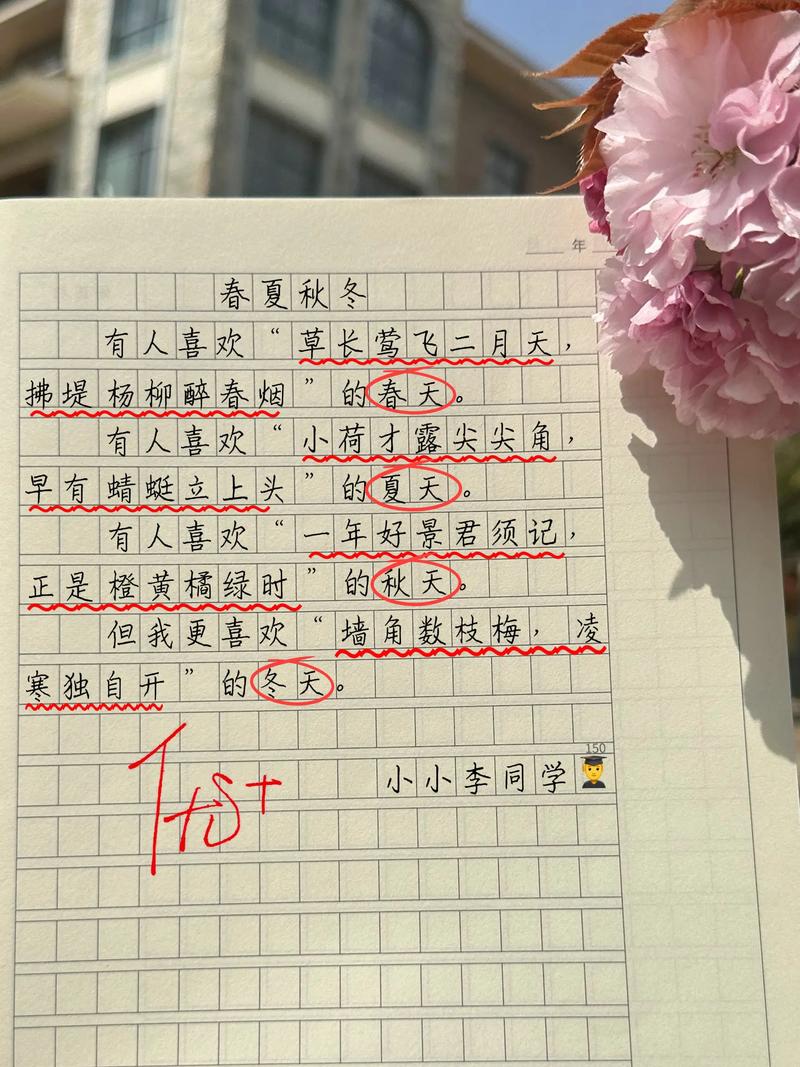 年
春夏秋冬
有人喜欢“草长莺飞二月天，
拂堤杨柳醉春烟”的春天。
有人喜欢“小荷才露尖尖角，
早有蜻蜓立上头”的夏天。
有人喜欢“一年好景君须记，
正是橙黄橘绿时”的秋天。
但我更喜欢“墙角数枝梅，凌
寒独自开”的冬天。
150
小小李同学
优+